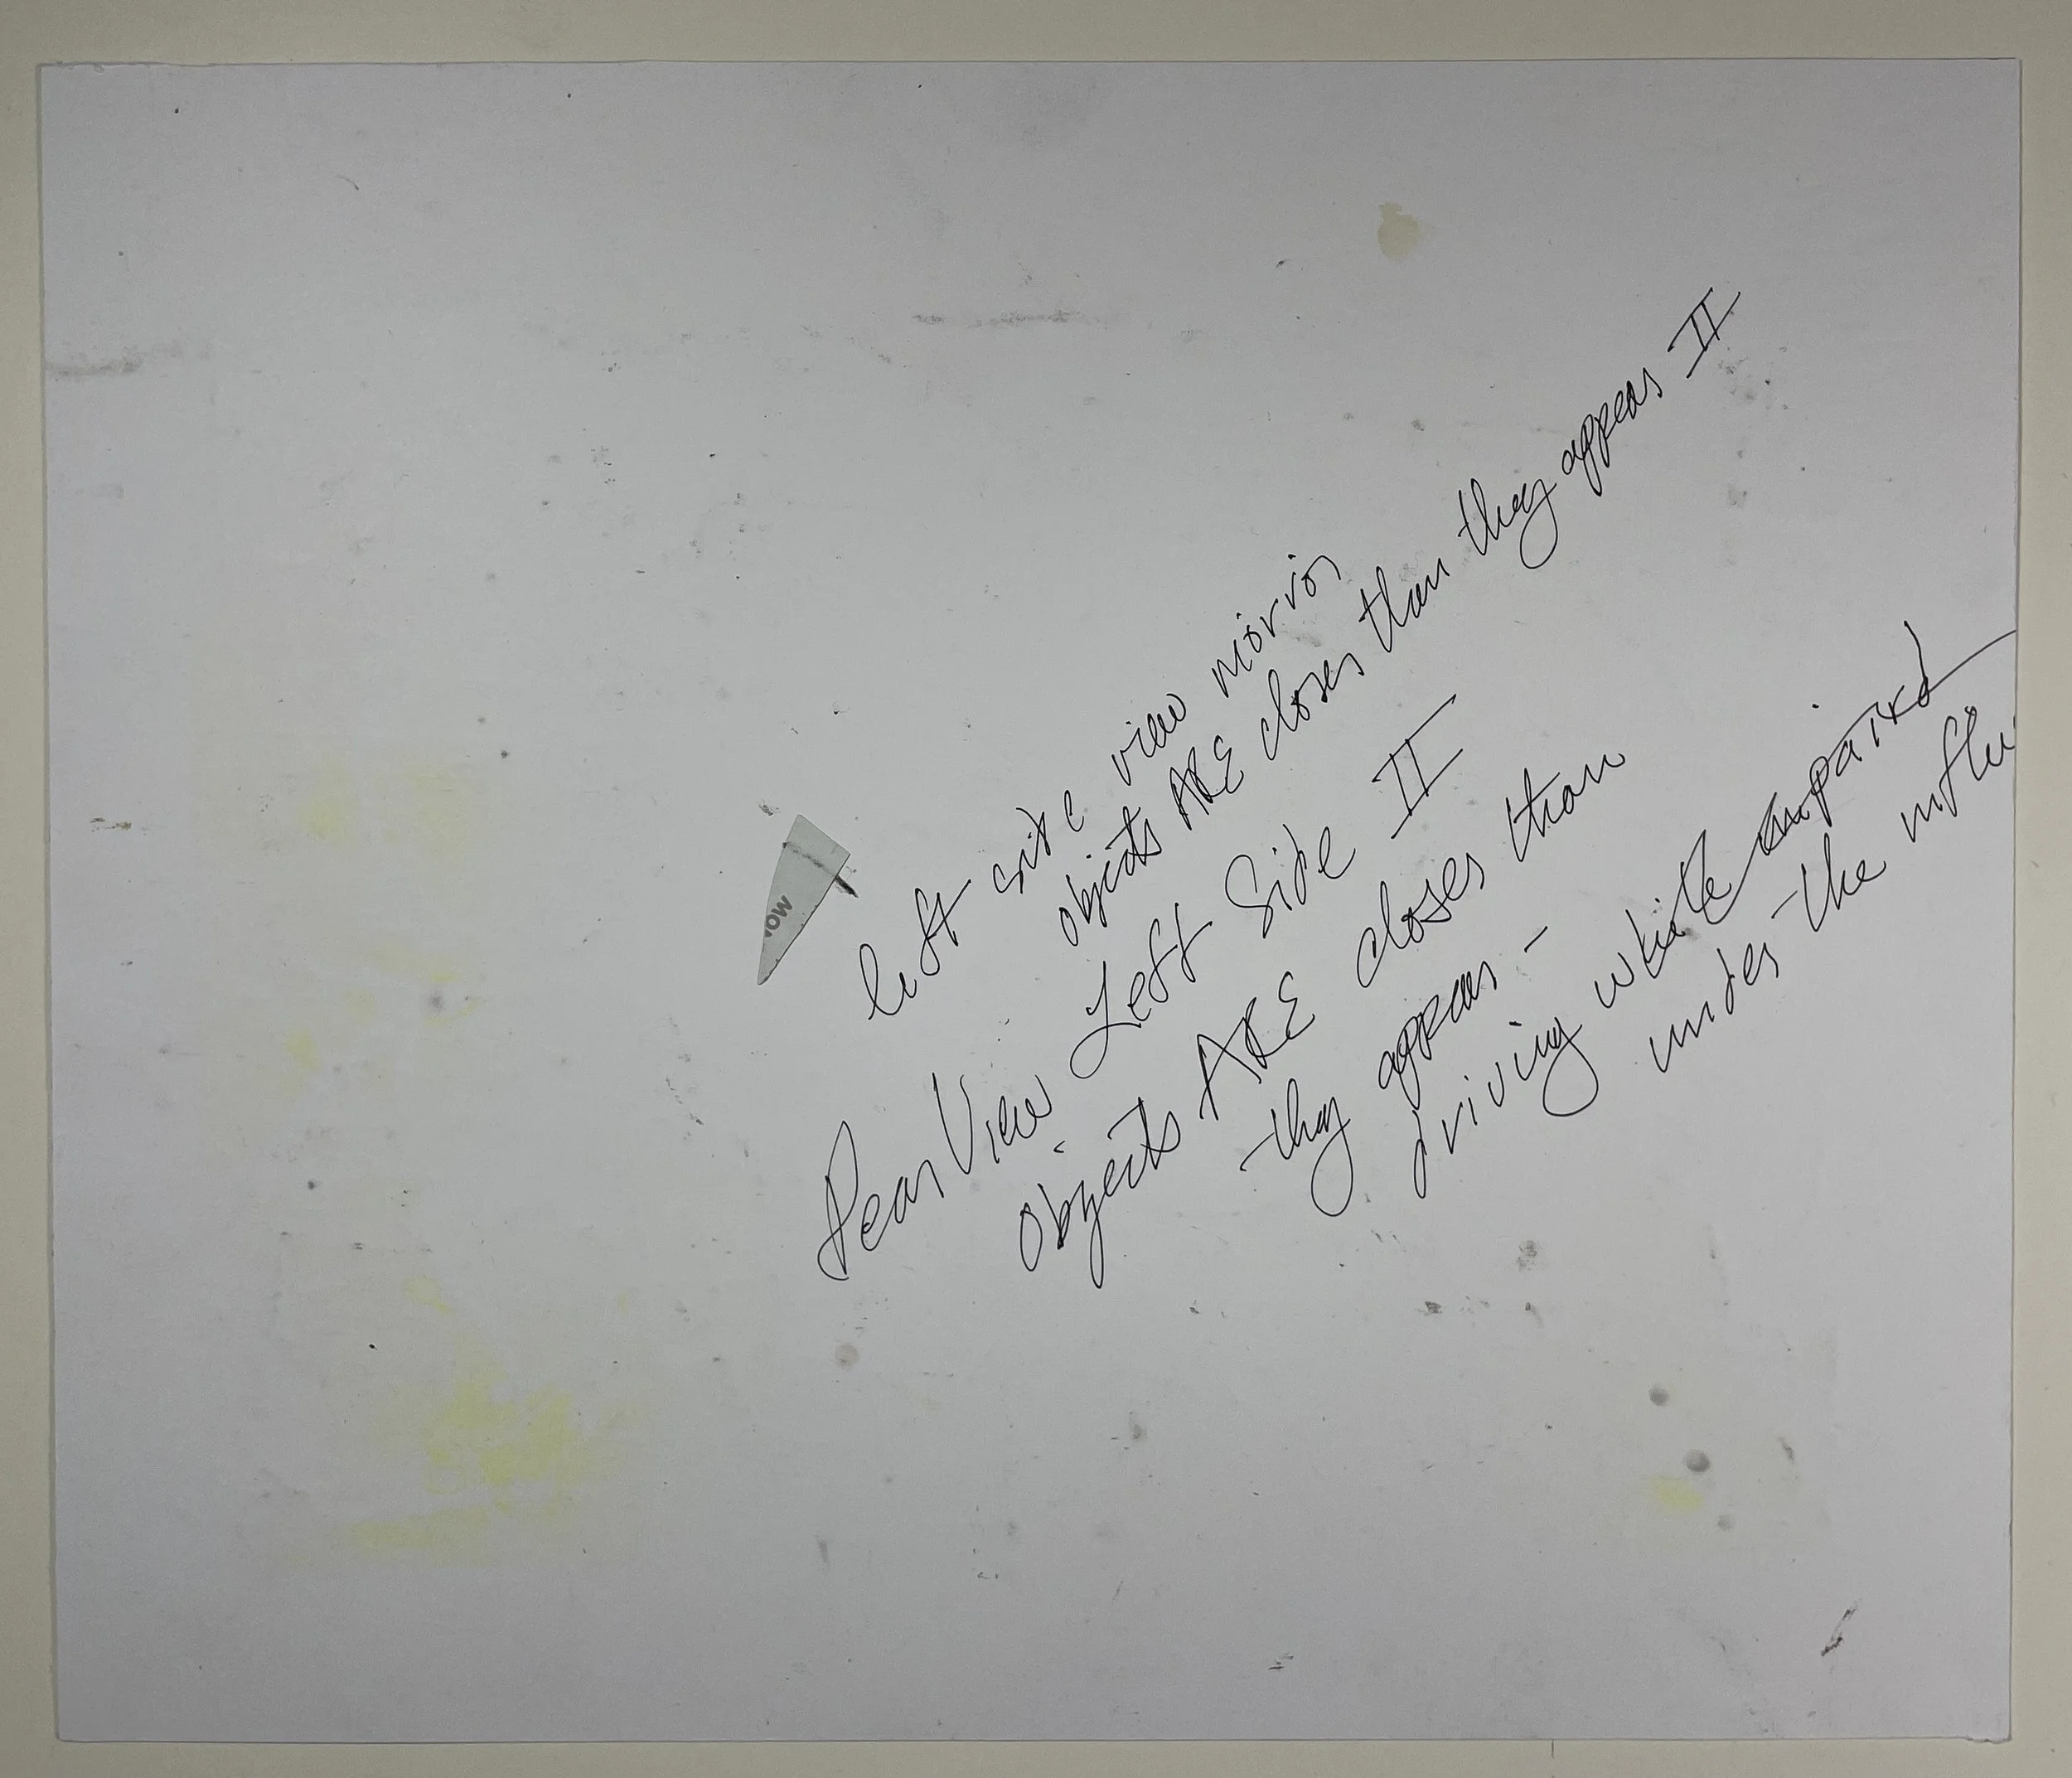 left side view mirror
objects ARE closer than they appear II
Rear View Left Side II
objects ARE closer than
they appear -
driving while impaired
under the influ
NOW